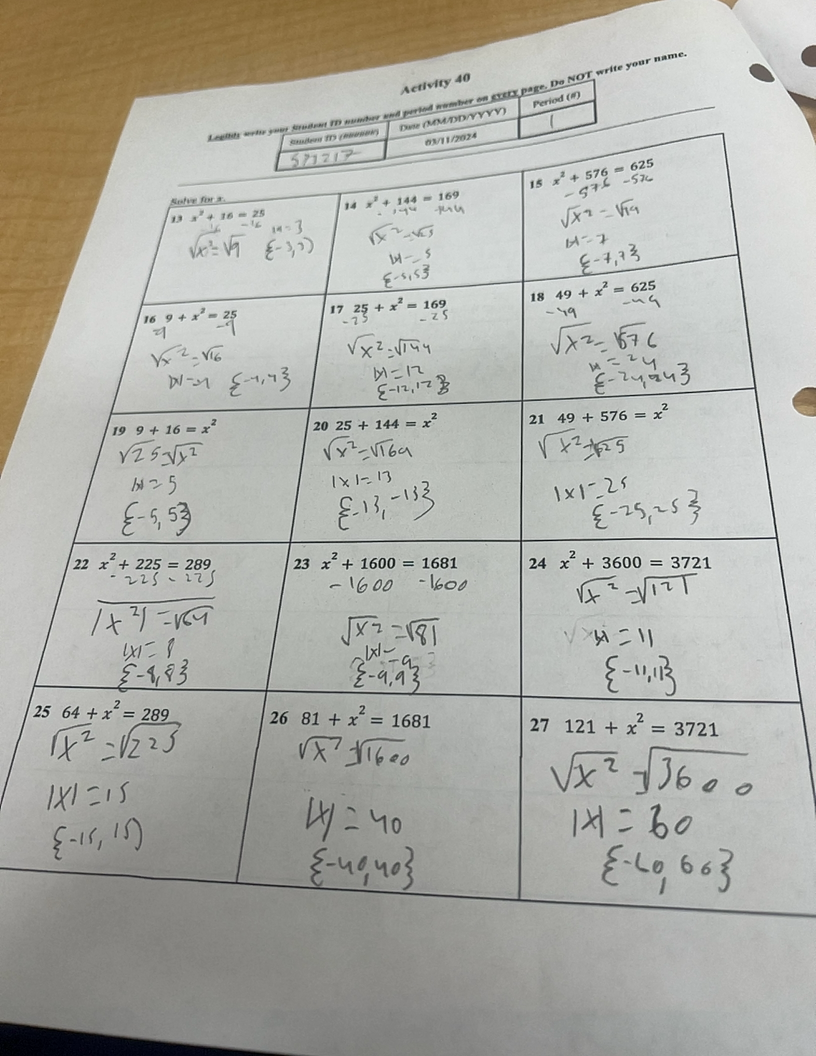 Activity 40
Legibly write your Student ID number and period number on every page. Do NOT write your name.
Student ID (######) Date (MM/DD/YYYY) Period (#)
03/11/2024 1
Solve for x.
13 x² + 16 = 25
-16 -16 |x| = 3
√x² = √9 {-3,3}
14 x² + 144 = 169
-144 -144
√x² = √25
|x| = 5
{-5,5}
15 x² + 576 = 625
-576 -576
√x² = √49
|x| = 7
{-7,7}
16 9 + x² = 25
-9 -9
√x² = √16
|x| = 4 {-4,4}
17 25 + x² = 169
-25 -25
√x² = √144
|x| = 12
{-12,12}
18 49 + x² = 625
-49 -49
√x² = √576
|x| = 24
{-24,24}
19 9 + 16 = x²
√25 = √x²
|x| = 5
{-5,5}
20 25 + 144 = x²
√x² = √169
|x| = 13
{-13,-13}
21 49 + 576 = x²
√x² = √625
|x| = 25
{-25,25}
22 x² + 225 = 289
-225 -225
√x² = √64
|x| = 8
{-8,8}
23 x² + 1600 = 1681
-1600 -1600
√x² = √81
|x| = 9
{-9,9}
24 x² + 3600 = 3721
√x² = √121
|x| = 11
{-11,11}
25 64 + x² = 289
√x² = √225
|x| = 15
{-15,15}
26 81 + x² = 1681
√x² = √1600
|x| = 40
{-40,40}
27 121 + x² = 3721
√x² = √3600
|x| = 60
{-60,60}